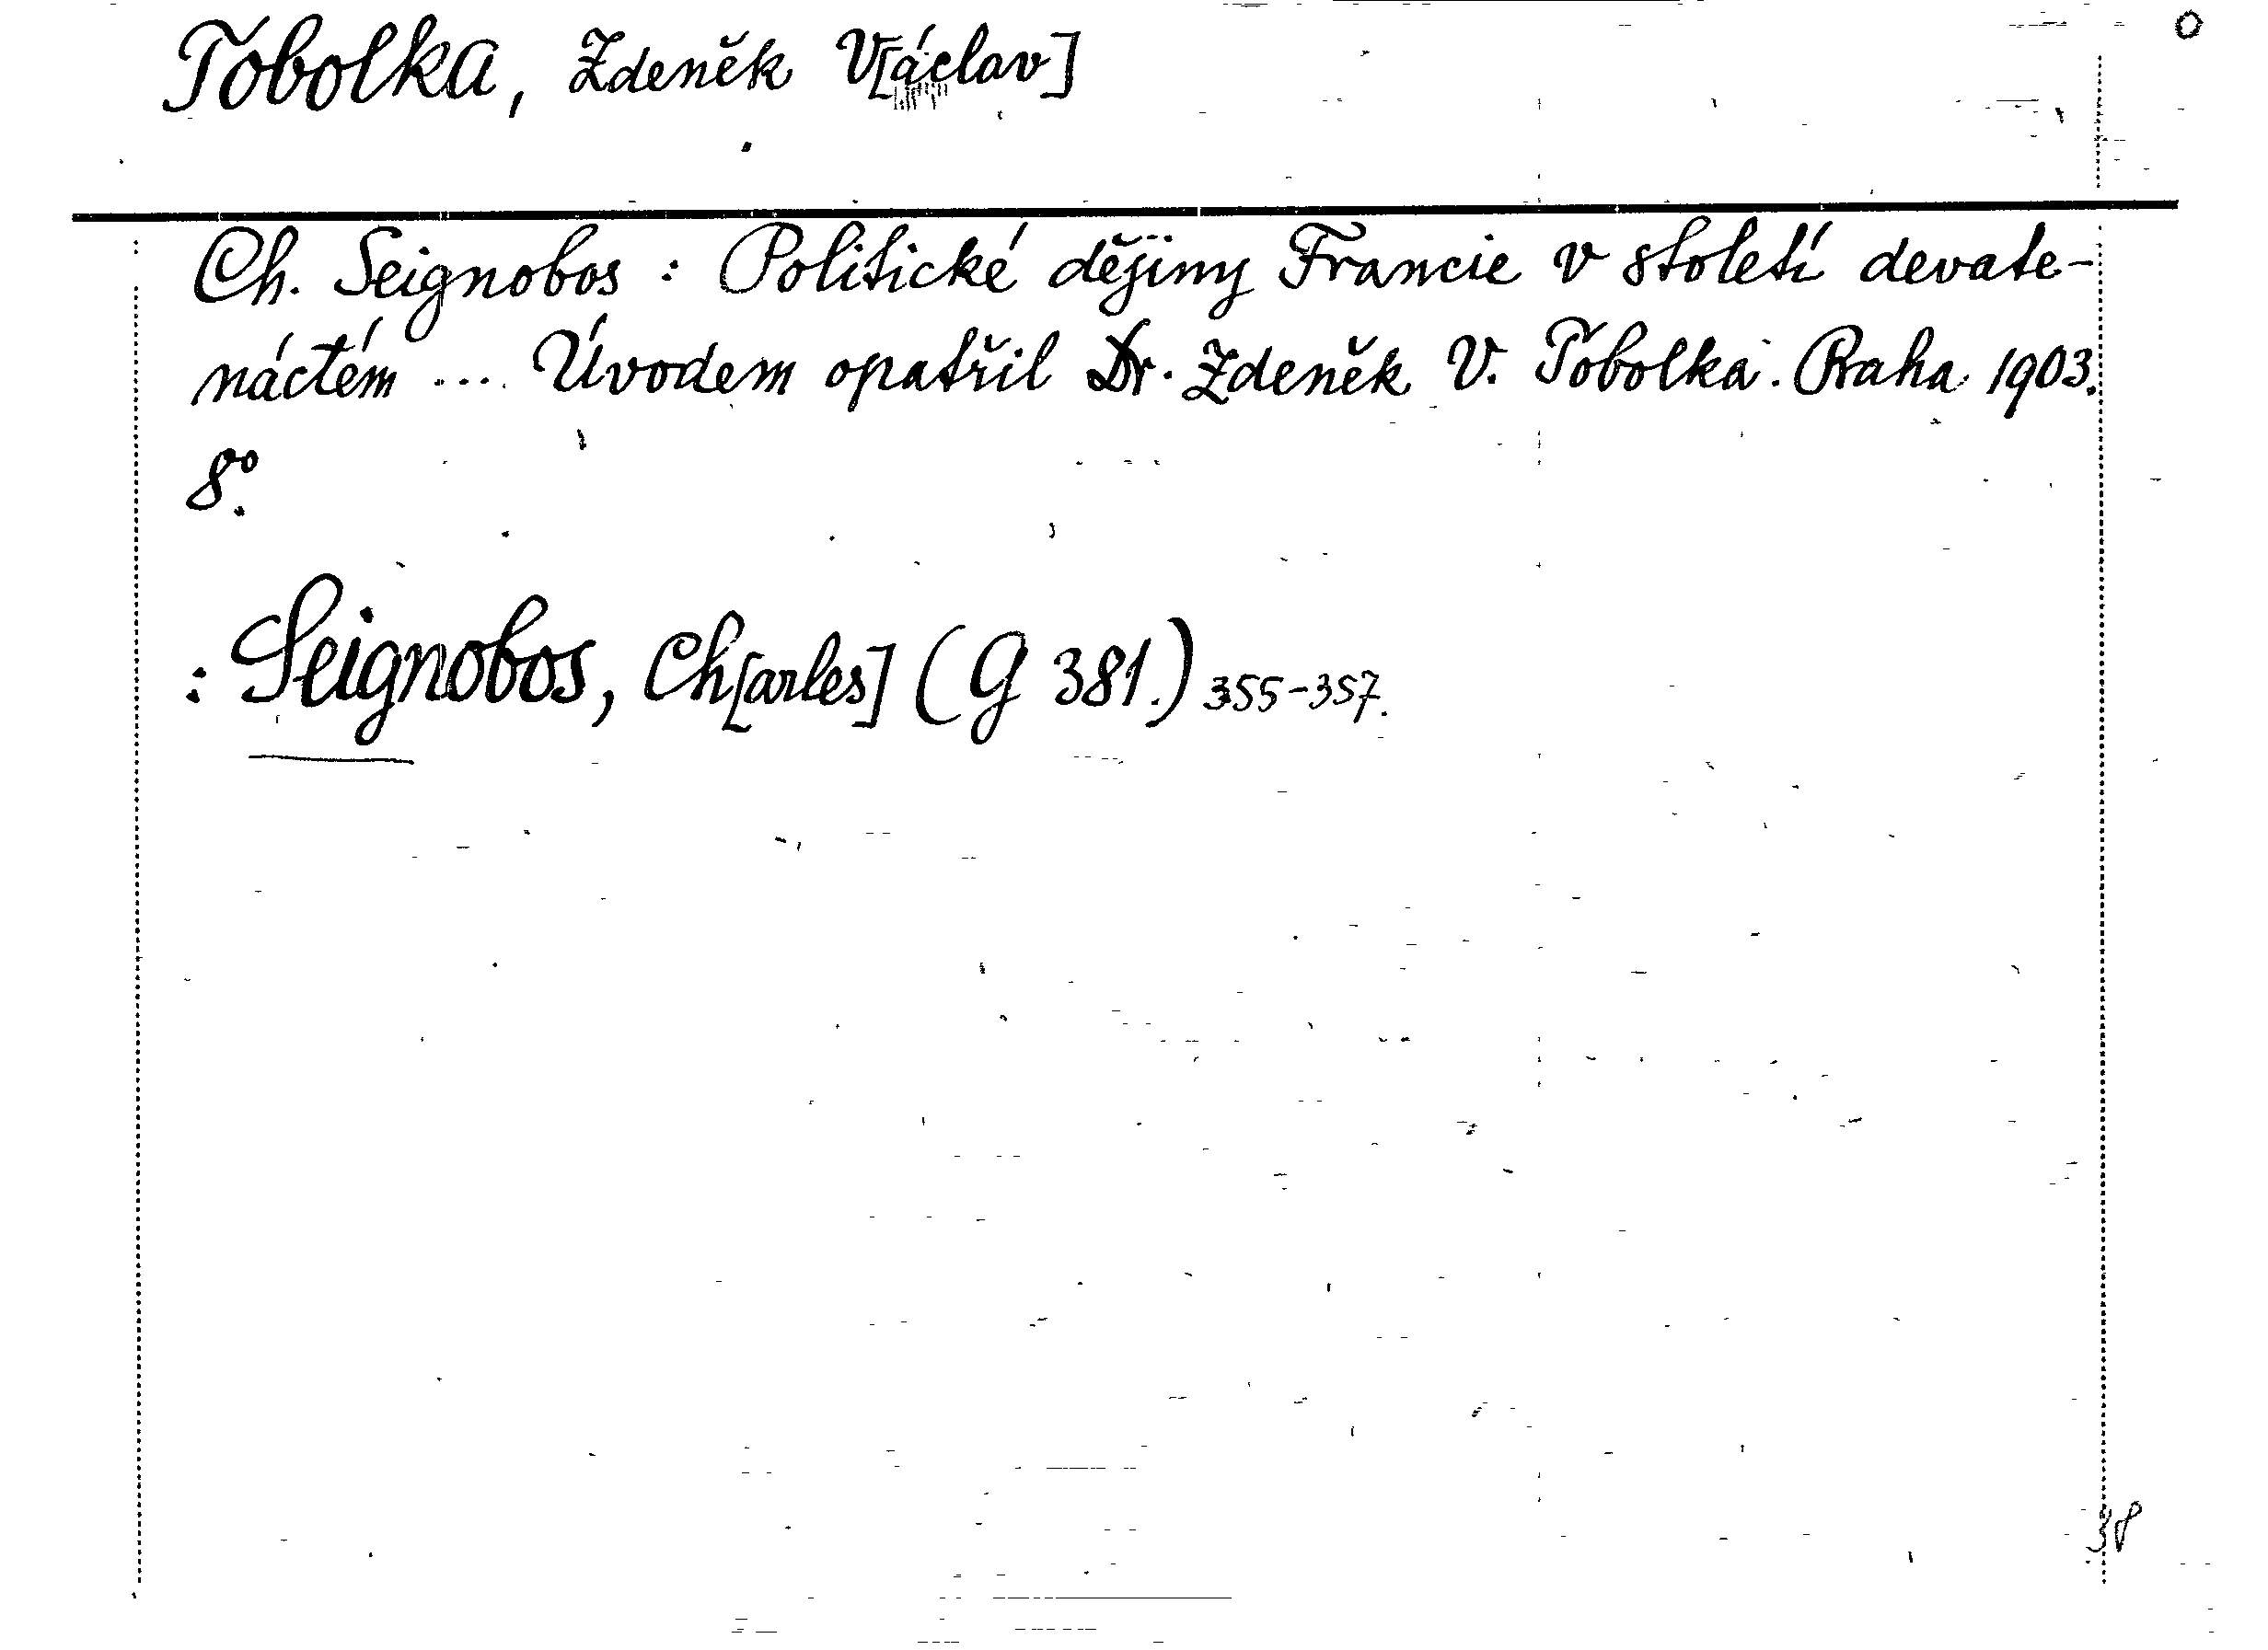 Tobolka, Zdeněk V[áclav]
Ch. Seignobos : Politické dějiny Francie v století devate-
náctém .... Úvodem opatřil Dr. Zdeněk V. Tobolka. Praha 1903.
8°.
: Seignobos, Ch[arles] (G 381.) 355-357.
38